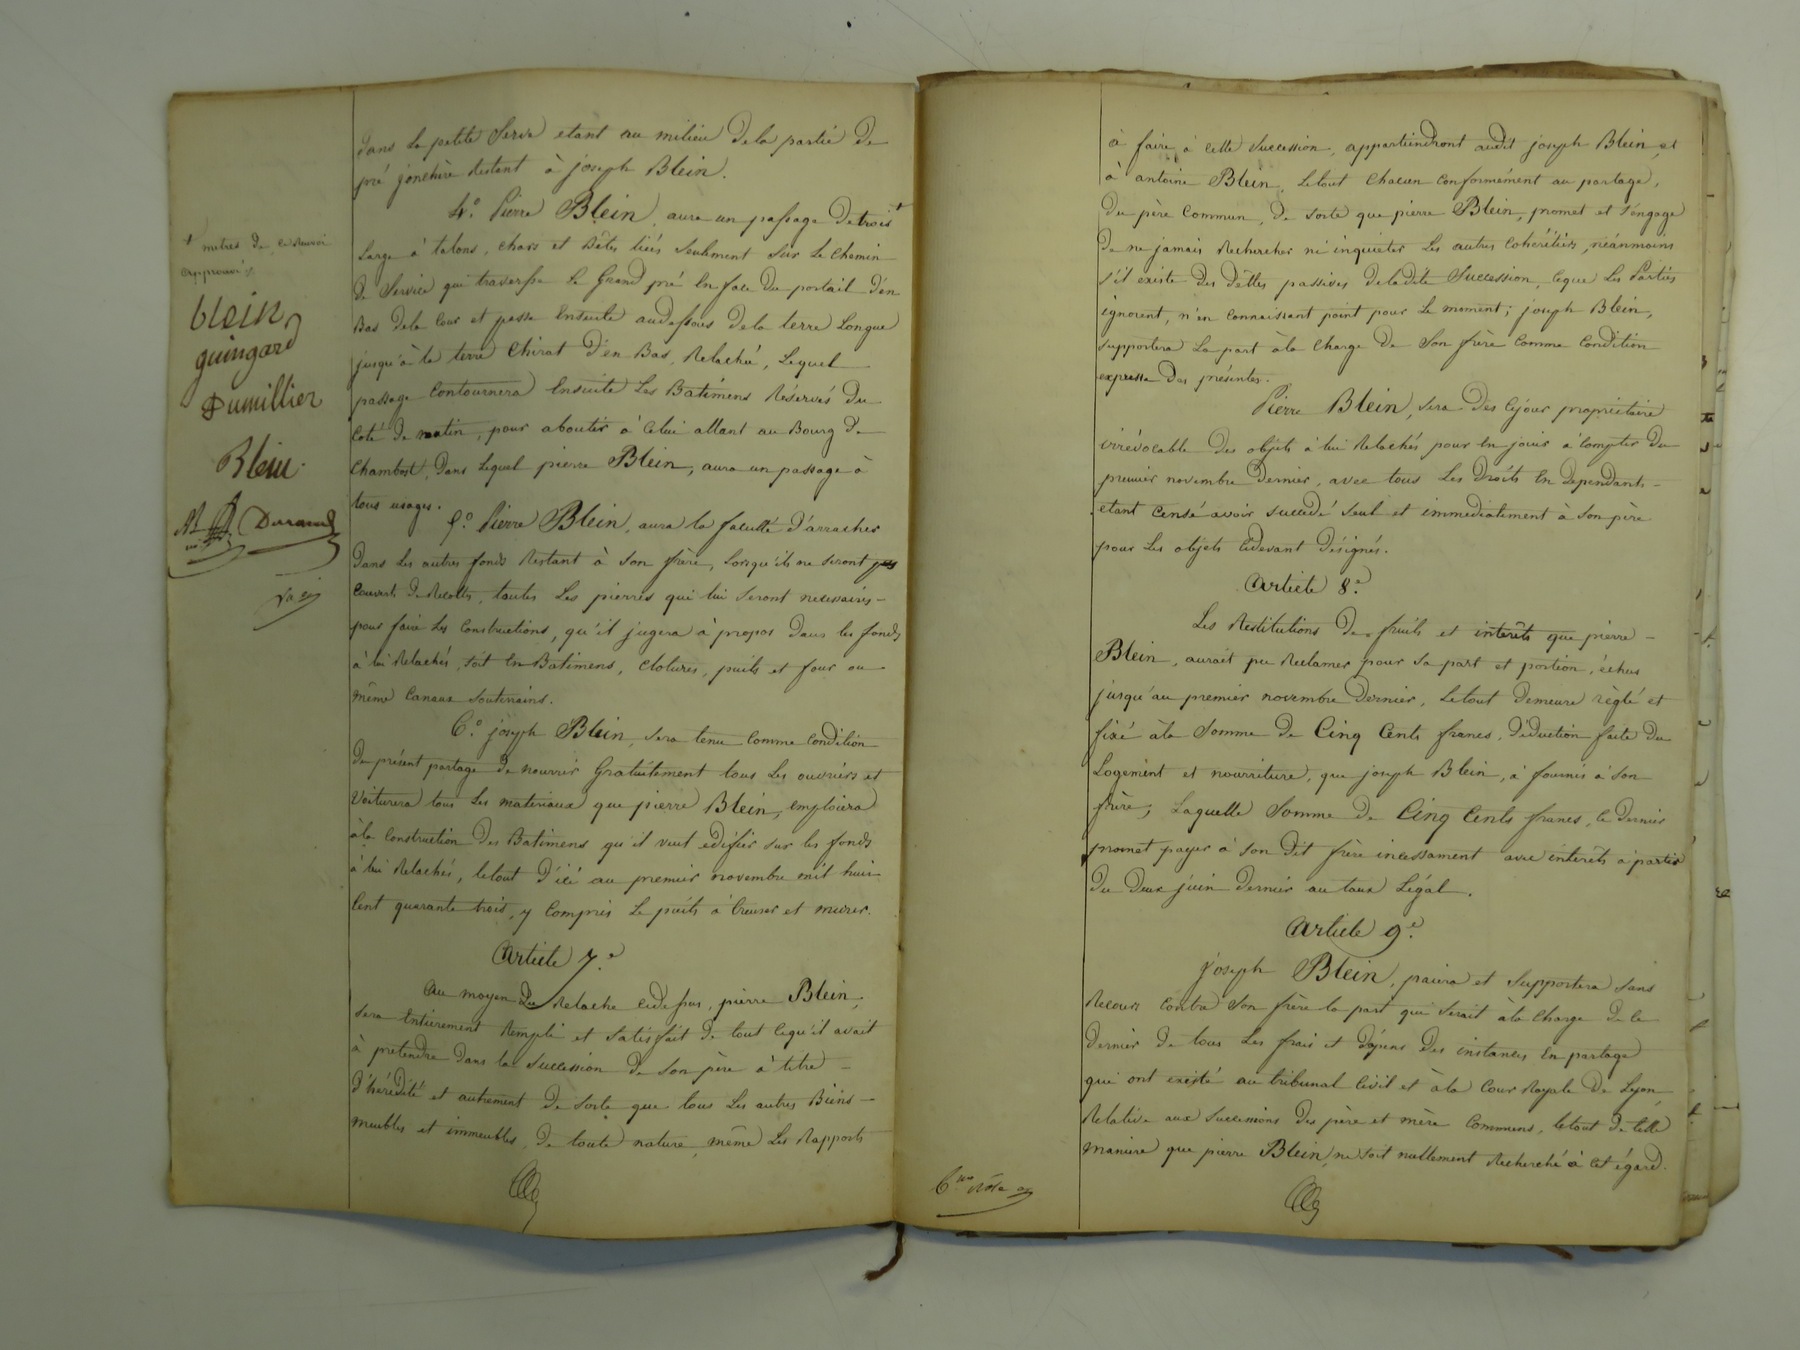 dans la petite Serve etant au milieu dela partie de
pré jonchère Restant à joseph Blein.
4.° Pierre Blein, aura un passage de trois +
Large à talons, chars et Bêtes liés Seulement Sur Le Chemin
de Service qui traverse le Grand pré En face du portail d'en
Bas dela Cour et passe Ensuite audessous dela terre Longue
jusqu'à la terre Chirat d'en Bas, Relaché, Lequel
passage Contournera Ensuite Les Batimens Réservés du
Coté de matin, pour aboutir à Celui allant au Bourg de
Chambost, dans Lequel pierre Blein, aura un passage à
tous usages.
5.° Pierre Blein, aura la faculté d'arracher
dans Les autres fonds Restant à Son frère, Lorsqu'ils ne Seront pas
Couverts de Récoltes, toutes Les pierres qui lui Seront necessaires
pour faire Les Constructions, qu'il jugera à propos dans les fonds
à lui Relachés, soit En Batimens, Clotures, puits et four ou
même Canaux Souterrains.
6.° joseph Blein, Sera tenu Comme Condition
du présent partage de nourrir Gratuitement tous Les ouvriers et
Voiturera tous Les materiaux que pierre Blein, emploiera
à la Construction des Batimens qu'il veut edifier sur les fonds
à lui Relachés, letout d'ici au premier novembre mil huit
Cent quarante trois, y Compris Le puits à Creuser et murer.
Article 7.e
Au moyen du Relache cidessus, pierre Blein,
Sera Entièrement Rempli et Satisfait de tout Cequ'il avait
à pretendre dans la Succession de Son père à titre
d'hérédité et autrement de Sorte que tous Les autres Biens
meubles et immeubles, de toute nature, même Les Rapports
+ mètres de
approuvé
blein
guingard
Dumillier
Blein
Durand
à faire à Cette Succession, appartiendront audit joseph Blein et
à antoine Blein, Letout Chacun Conformément au partage,
du père Commun, de Sorte que pierre Blein, promet et S'engage
de ne jamais Rechercher ni inquieter Les autres Cohéritiers, néanmoins
s'il existe des dettes passives deladite Succession, Ceque Les Parties
ignorent, n'en Connaissant point pour Le moment; joseph Blein,
Supportera La part à la Charge de Son frère Comme Condition
expresse des présentes.
Pierre Blein, Sera dès Cejour propriétaire
irrévocable des objets à lui Relachés pour En jouir à Compter du
premier novembre dernier, avec tous Les droits En dependants
etant Censé avoir Succédé Seul et immediatement à Son père
pour Les objets Cidevant désignés.
Article 8.e
Les Restitutions de fruits et interêts que pierre
Blein, aurait pu Reclamer pour Sa part et portion, échus
jusqu'au premier novembre dernier, Letout demeure règlé et
fixé à la Somme de Cinq Cents francs, déduction faite du
Logement et nourriture, que joseph Blein, à fournis à Son
frère; Laquelle Somme de Cinq Cents francs, ce dernier
promet payer à Son dit frère incessament avec interêts à partir
du deux juin dernier au taux Légal.
Article 9.e
joseph Blein, paiera et Supportera Sans
Recours Contre Son frère la part qui Serait à la Charge de Ce
dernier de tous Les frais et dépens des instances En partage
qui ont existé au tribunal Civil et à la Cour Royale de Lyon
Relative aux Successions des père et mère Communs, letout de telle
manière que pierre Blein, ne Soit nullement Recherché à Cet égard.